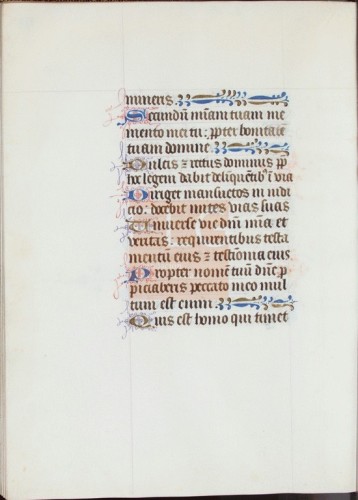 mineris.
Secundū mīam tuam me
mento mei tu: ꝓpter bonitatē
tuam domine
Dulcis ⁊ rectus dominus ꝓp
hoc legem dabit delīquentibꝰ ī via
Diriget mansuetos in iudi
cio: docebit mites vias suas
Universe vie dn̄i mīa et
veritas: requirentibus testa
mentū eius ⁊ testīonia eius
Propter nomē tuū dn̄e ꝓp
piciaberis peccato meo mul
tum est enim.
Quis est homo qui timet